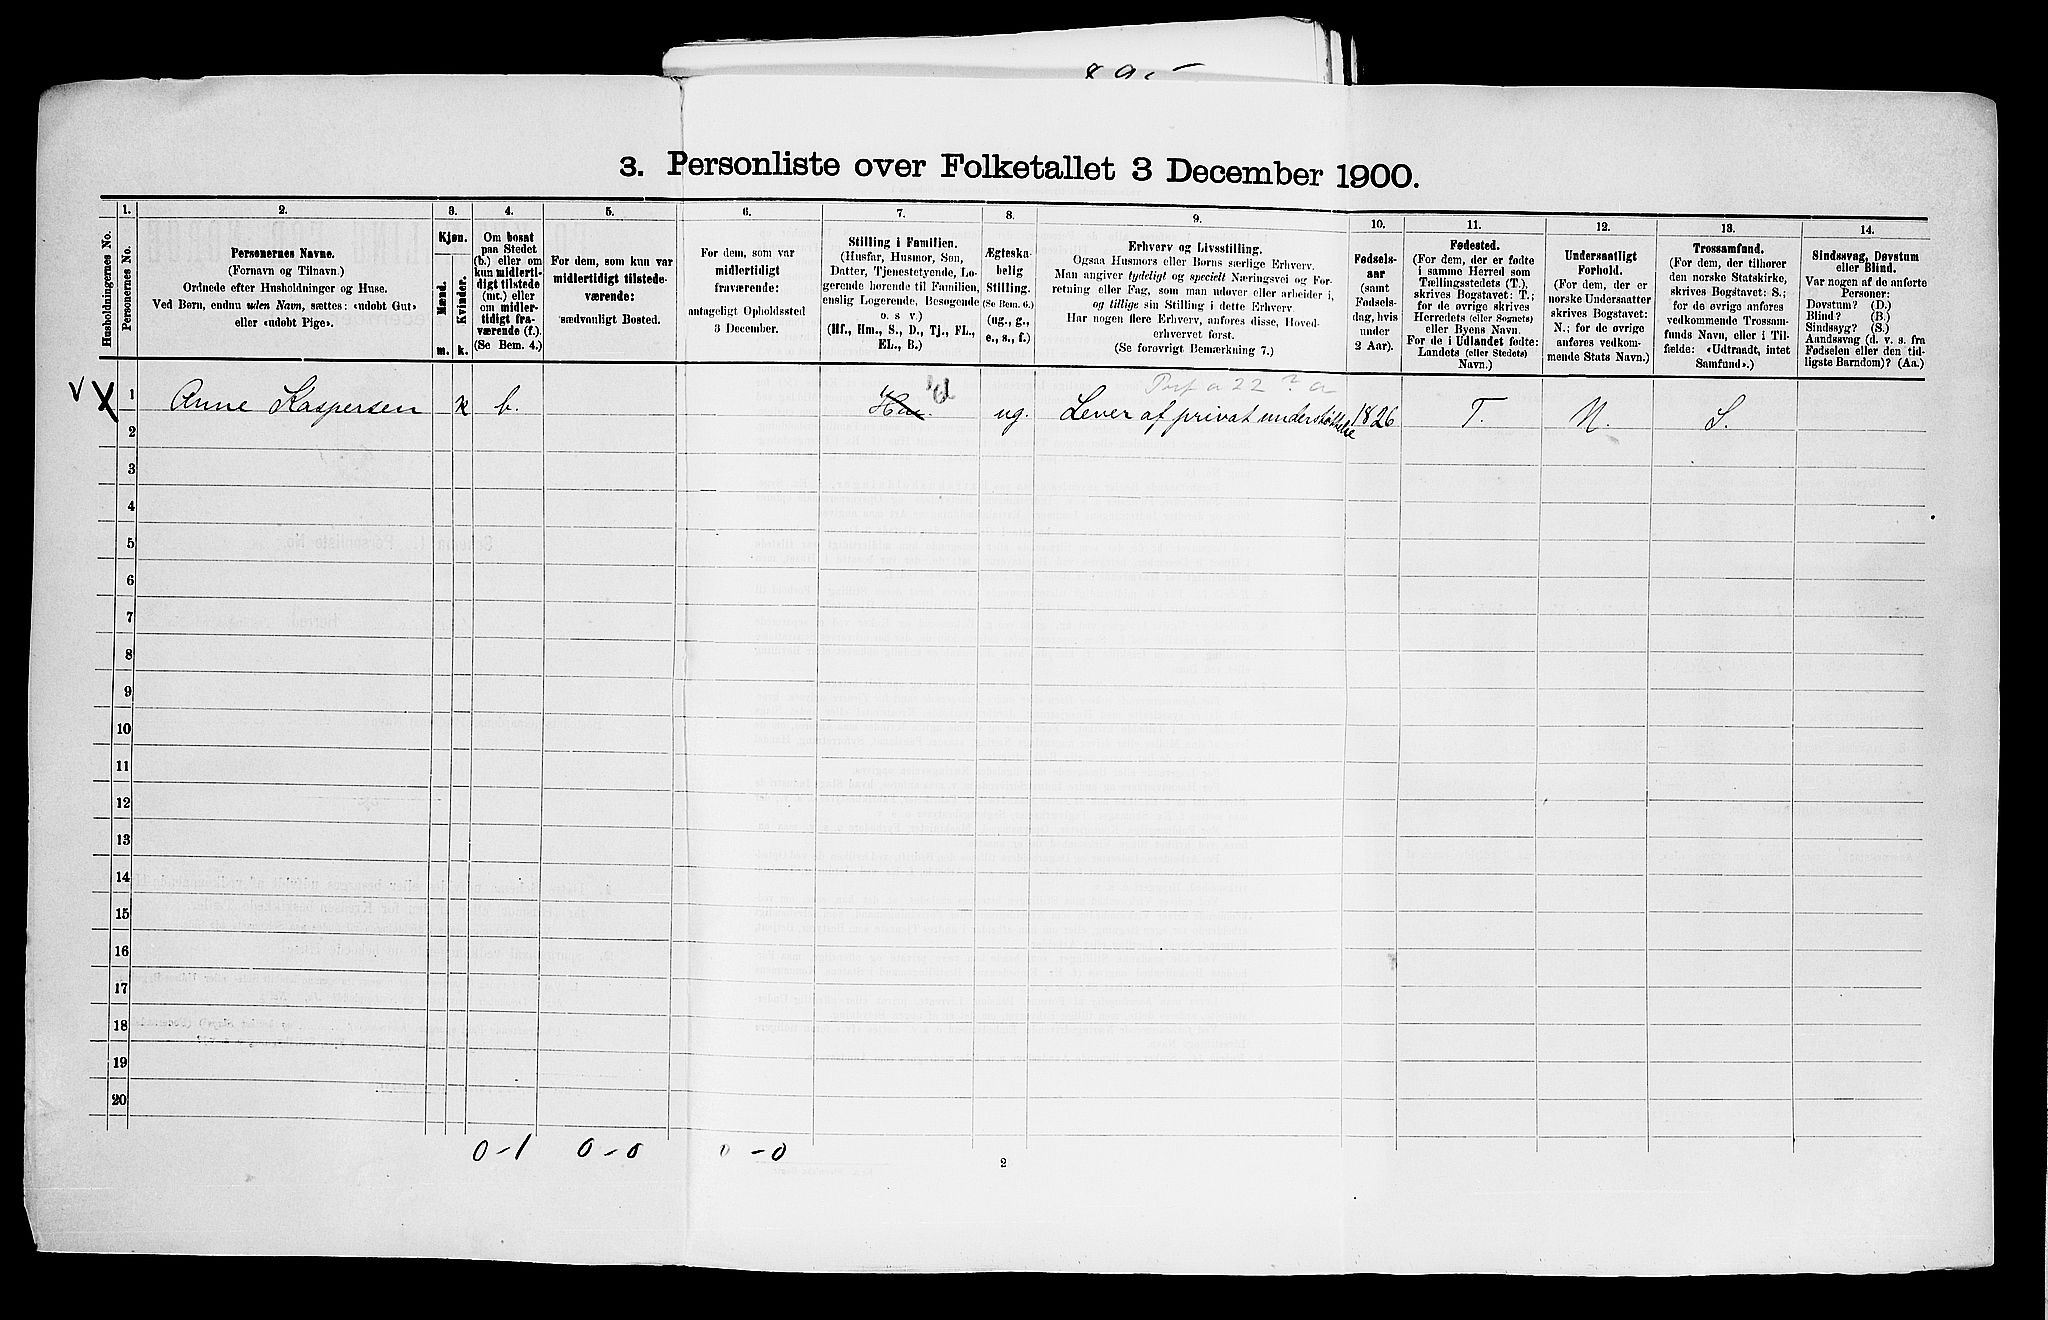 3. Personliste over Folketallet 3 December 1900.
1. 2. 3. 4. 5. 6. 7. 8. 9. 10. 11. 12. 13. 14.
Husholdningernes No.
Personernes No.
Personernes Navne.
(Fornavn og Tilnavn.)
Ordnede efter Husholdninger og Huse.
Ved Børn, endnu uden Navn, sættes: «udøbt Gut»
eller «udøbt Pige».
Kjøn.
Mænd.
Kvinder.
m. k.
Om bosat
paa Stedet
(b.) eller om
kun midlerti-
digt tilstede
(mt.) eller
om midler-
tidigt fra-
værende (f.).
(Se Bem. 4.)
For dem, som kun var
midlertidigt tilstede-
værende:
sædvanligt Bosted.
For dem, som var
midlertidigt
fraværende:
antageligt Opholdssted
3 December.
Stilling i Familien.
(Husfar, Husmor, Søn,
Datter, Tjenestetyende, Lo-
gerende hørende til Familien,
enslig Logerende, Besøgende
o. s. v.)
(Hf., Hm., S., D., Tj., FL.,
EL., B.)
Ægteska-
belig
Stilling.
(Se Bem. 6.)
(ug., g.,
e., s., f.)
Erhverv og Livsstilling.
Ogsaa Husmors eller Børns særlige Erhverv.
Man angiver tydeligt og specielt Næringsvei og For-
retning eller Fag, som man udøver eller arbeider i,
og tillige sin Stilling i dette Erhverv
Har nogen flere Erhverv, anføres disse, Hoved-
erhvervet først.
(Se forøvrigt Bemærkning 7.)
Fødsels-
aar
(samt
Fødsels-
dag, hvis
under
2 Aar).
Fødested.
(For dem, der er fødte
i samme Herred som
Tællingsstedets (T.),
skrives Bogstavet: T.;
for de øvrige skrives
Herredets (eller Sognets)
eller Byens Navn.
For de i Udlandet fødte:
Landets (eller Stedets)
Navn.)
Undersaatligt
Forhold.
(For dem, der er
norske Undersaatter
skrives Bogstavet:
N.; for de øvrige
anføres vedkom-
mende Stats Navn.)
Trossamfund.
(For dem, der tilhører
den norske Statskirke,
skrives Bogstavet: S.;
for de øvrige anføres
vedkommende Trossam-
funds Navn, eller i Til-
fælde: «Udtraadt, intet
Samfund».)
Sindssvag, Døvstum
eller Blind.
Var nogen af de anførte
Personer:
Døvstum? (D.)
Blind? (B.)
Sindssyg? (S.)
Aandssvag (d. v. s. fra
Fødselen eller den tid-
ligste Barndom)? (Aa.)
1 Anne Kaspersen k b. ug. Lever af privat understøttelse 1826 T. N. S.
2
3
4
5
6
7
8
9
10
11
12
13
14
15
16
17
18
19
20
0-1 0-0 0-0
2